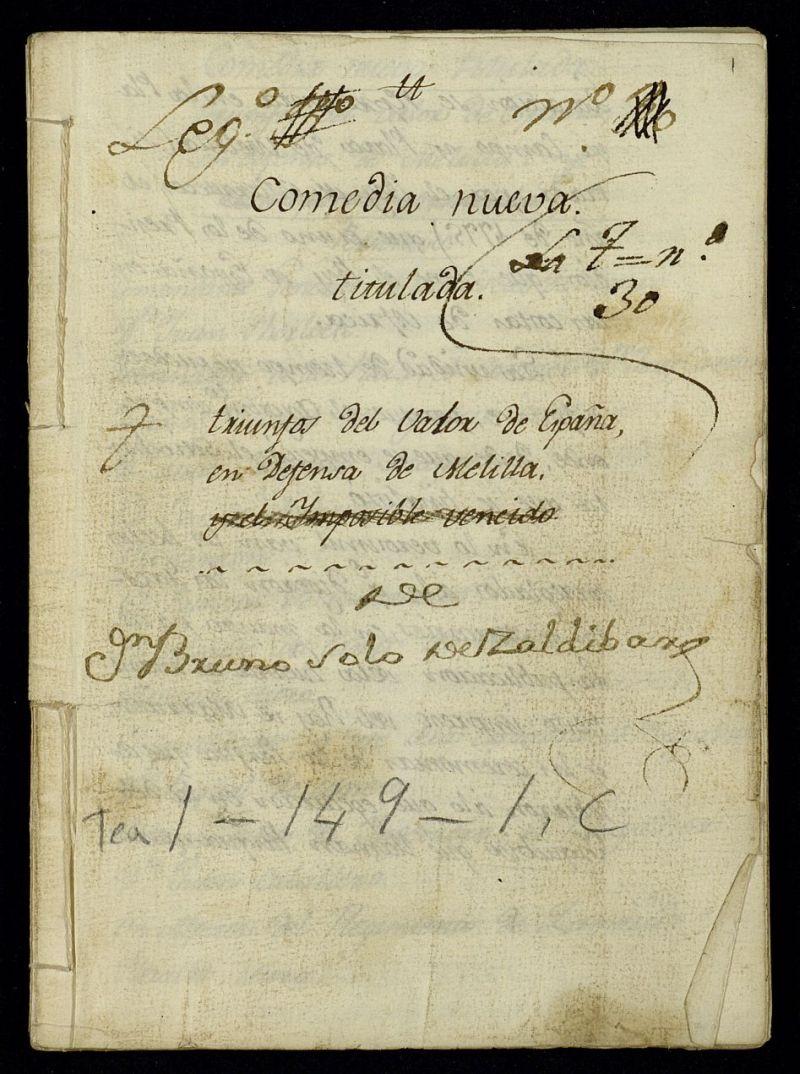 Leg.º nº
Comedia nueva.
La 7=n.º
titulada.
30
triunfos del Valor de España,
en Defensa de Melilla.
y el Imposible vencido
De
Bruno Solo de Zaldibar
Tea 1-149-1, C